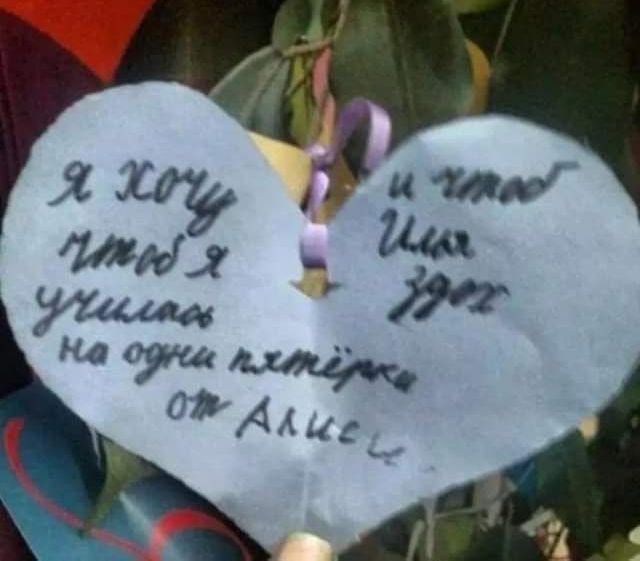 я хочу
чтоб я
училась
на одни пятёрки
от Алисы
и чтоб
Илья
здох